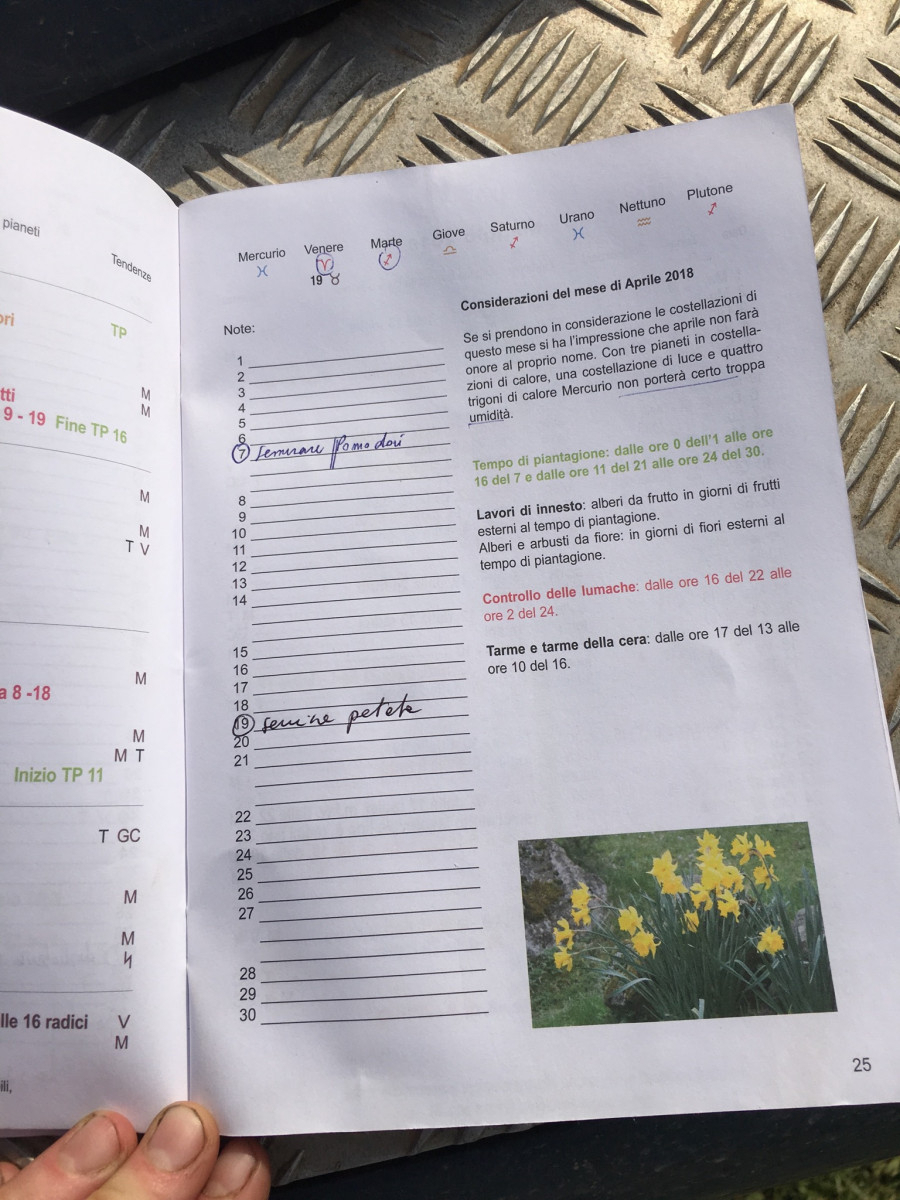 pianeti
Tendenze
ori
TP
M
tti
M
9 - 19 Fine TP 16
M
M
T V
M
a 8 -18
M
M T
Inizio TP 11
T GC
M
M
lle 16 radici V
M
ili,
Mercurio Venere Marte Giove Saturno Urano Nettuno Plutone
♓ ♈ ♐ ♎ ♐ ♓ ♒ ♐
19 ♉
Note:
1
2
3
4
5
6
7 seminare Pomodori
8
9
10
11
12
13
14
15
16
17
18
19 semine patate
20
21
22
23
24
25
26
27
28
29
30
Considerazioni del mese di Aprile 2018
Se si prendono in considerazione le costellazioni di
questo mese si ha l'impressione che aprile non farà
onore al proprio nome. Con tre pianeti in costella-
zioni di calore, una costellazione di luce e quattro
trigoni di calore Mercurio non porterà certo troppa
umidità.
Tempo di piantagione: dalle ore 0 dell'1 alle ore
16 del 7 e dalle ore 11 del 21 alle ore 24 del 30.
Lavori di innesto: alberi da frutto in giorni di frutti
esterni al tempo di piantagione.
Alberi e arbusti da fiore: in giorni di fiori esterni al
tempo di piantagione.
Controllo delle lumache: dalle ore 16 del 22 alle
ore 2 del 24.
Tarme e tarme della cera: dalle ore 17 del 13 alle
ore 10 del 16.
25